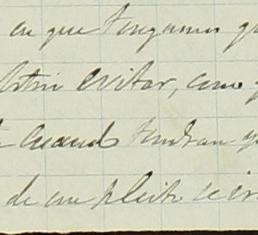 en que tengamos q
evitar, como
cuando tendran
de un pleito